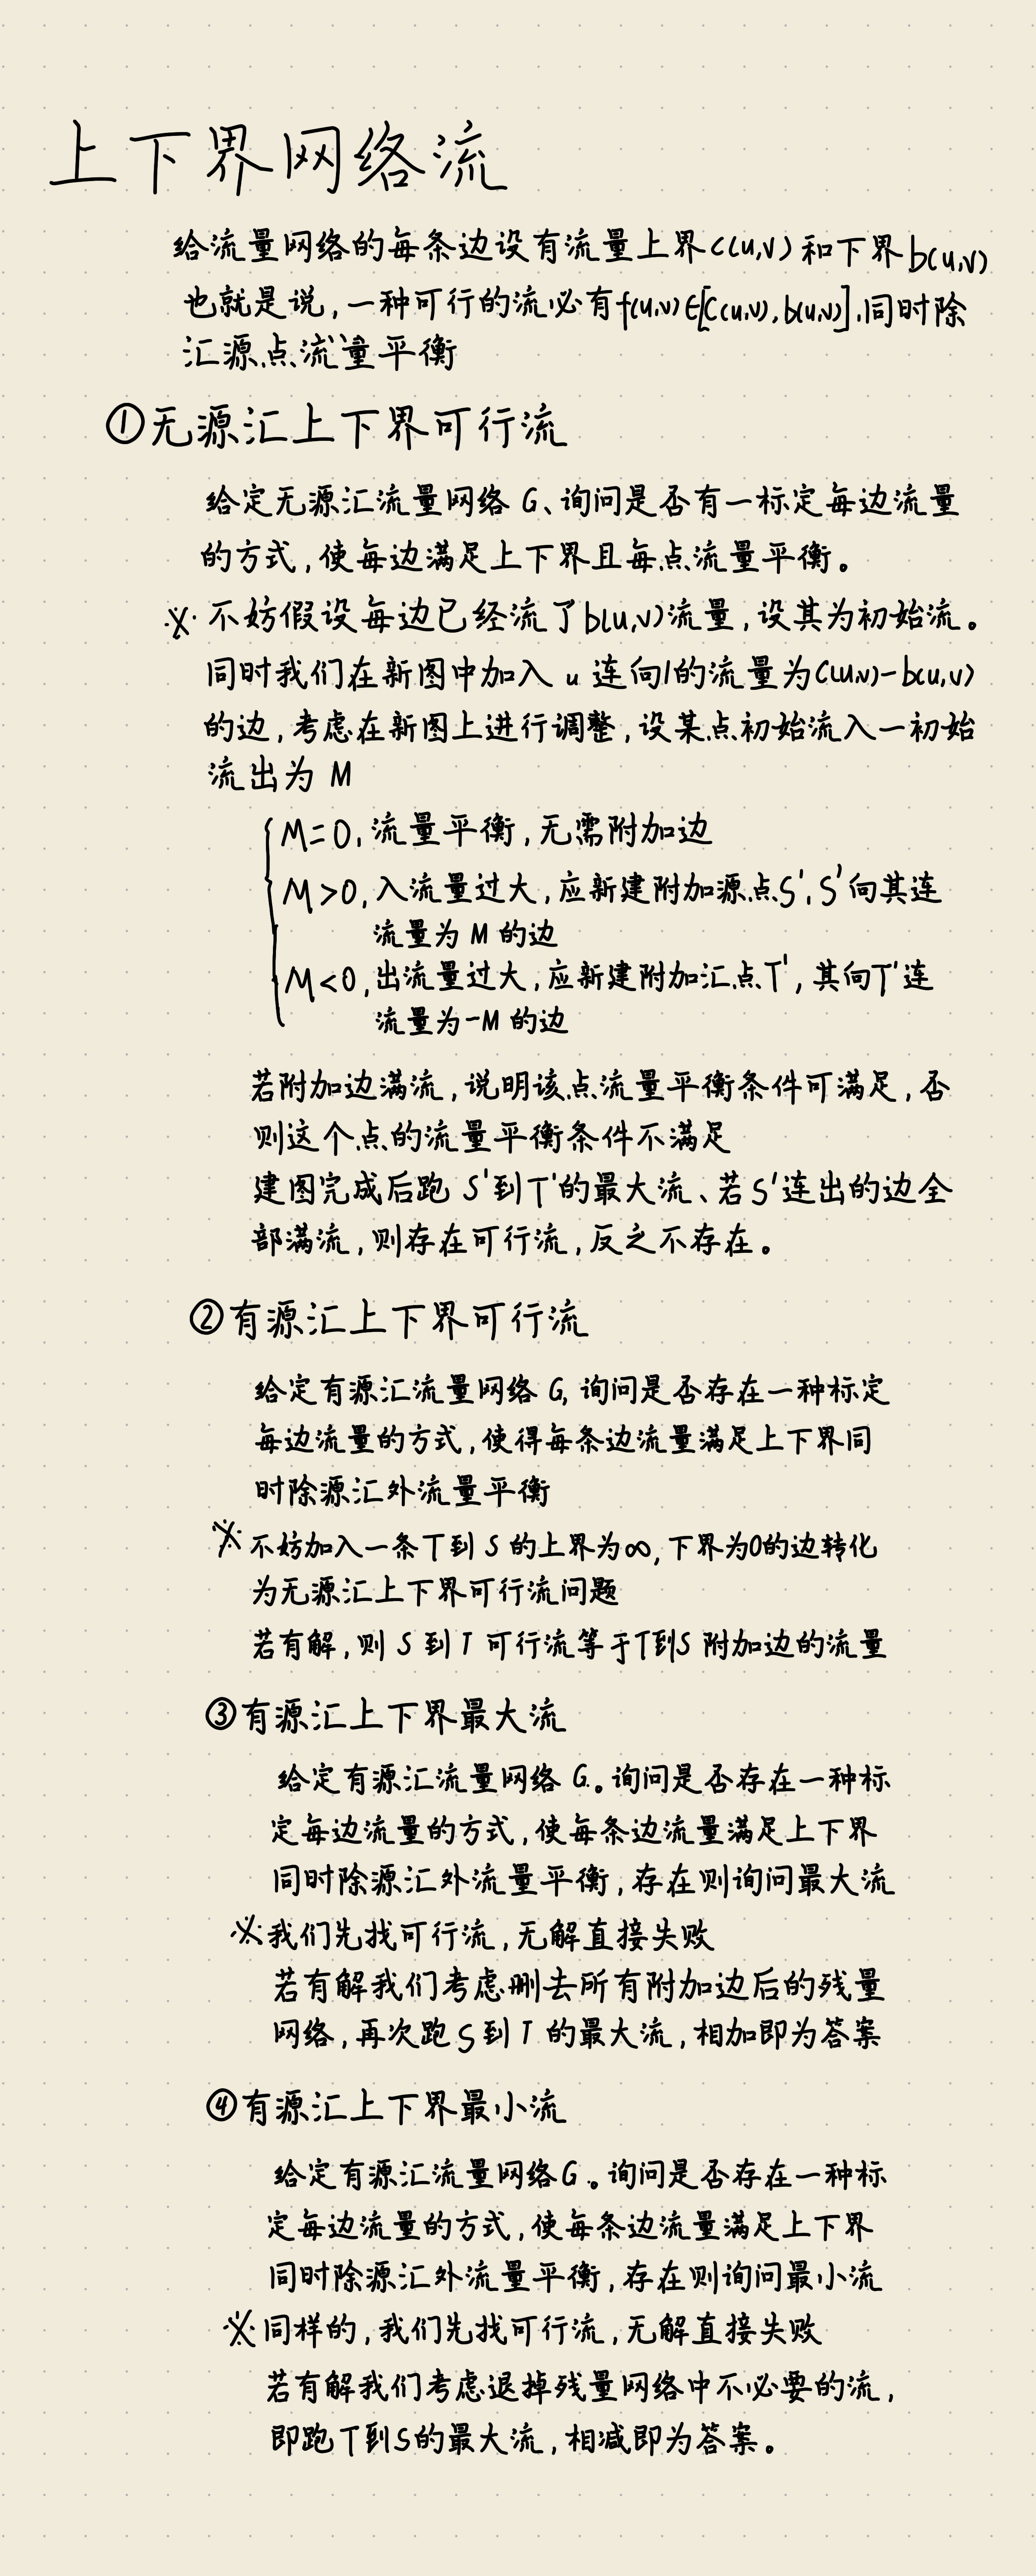 上下界网络流
给流量网络的每条边设有流量上界c(u,v)和下界b(u,v)
也就是说，一种可行的流必有f(u,v)∈[C(u,v),b(u,v)].同时除
汇源点流量平衡
①无源汇上下界可行流
给定无源汇流量网络 G、询问是否有一标定每边流量
的方式，使每边满足上下界且每点流量平衡。
※不妨假设每边已经流了b(u,v)流量，设其为初始流。
同时我们在新图中加入 u 连向v的流量为C(u,v)-b(u,v)
的边，考虑在新图上进行调整，设某点初始流入一初始
流出为 M
M=0，流量平衡，无需附加边
M>0，入流量过大，应新建附加源点S'，S'向其连
流量为 M 的边
M<0，出流量过大，应新建附加汇点T'，其向T'连
流量为-M 的边
若附加边满流，说明该点流量平衡条件可满足，否
则这个点的流量平衡条件不满足
建图完成后跑 S'到T'的最大流、若S'连出的边全
部满流，则存在可行流，反之不存在。
②有源汇上下界可行流
给定有源汇流量网络 G, 询问是否存在一种标定
每边流量的方式，使得每条边流量满足上下界同
时除源汇外流量平衡
※不妨加入一条 T 到 S 的上界为∞，下界为0的边转化
为无源汇上下界可行流问题
若有解，则 S 到 T 可行流等于T到S 附加边的流量
③有源汇上下界最大流
给定有源汇流量网络 G。询问是否存在一种标
定每边流量的方式，使每条边流量满足上下界
同时除源汇外流量平衡，存在则询问最大流
※我们先找可行流，无解直接失败
若有解我们考虑删去所有附加边后的残量
网络，再次跑 S 到 T 的最大流，相加即为答案
④有源汇上下界最小流
给定有源汇流量网络G。询问是否存在一种标
定每边流量的方式，使每条边流量满足上下界
同时除源汇外流量平衡，存在则询问最小流
※同样的，我们先找可行流，无解直接失败
若有解我们考虑退掉残量网络中不必要的流，
即跑T到S的最大流，相减即为答案。